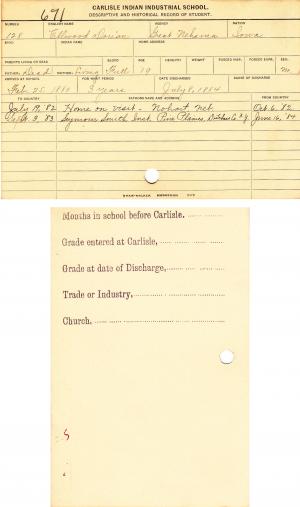 671
CARLISLE INDIAN INDUSTRIAL SCHOOL.
DESCRIPTIVE AND HISTORICAL RECORD OF STUDENT.
NUMBER ENGLISH NAME AGENCY NATION
128 Ellwood Dorian Great Nehama Iowa
BAND INDIAN NAME HOME ADDRESS
PARENTS LIVING OR DEAD BLOOD AGE HEIGHT WEIGHT FORCED INSP. FORCED EXPR. SEX
FATHER Dead MOTHER Living Full 19 M
ARRIVED AT SCHOOL FOR WHAT PERIOD DATE DISCHARGED CAUSE OF DISCHARGE
Feb. 25, 1880 3 years July 8, 1884
TO COUNTRY PATRONS NAME AND ADDRESS FROM COUNTRY
July 19, '82 Home on visit - Nohart, Neb. Oct. 6, '82
Sept. 3, '83 Seymour Smith Inst. Pine Plains, Dutchess Co. N.Y. June 16, '84
Months in school before Carlisle,
Grade entered at Carlisle,
Grade at date of Discharge,
Trade or Industry,
Church,